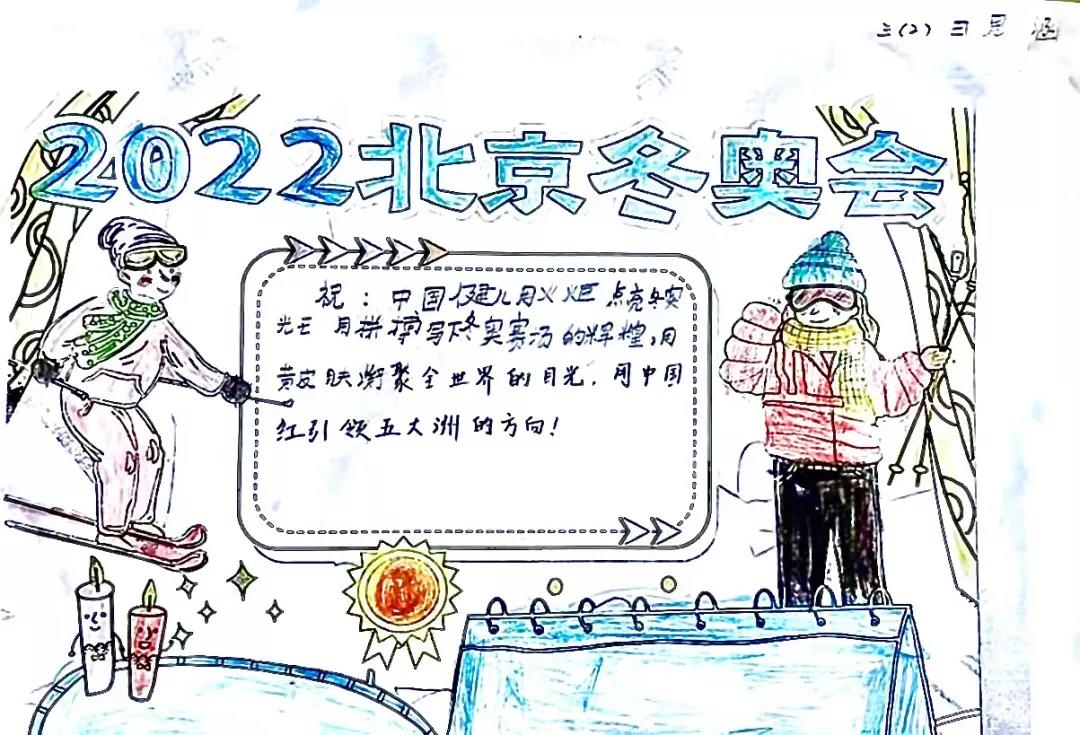 三(2) 涵
2022北京冬奥会
祝：中国健儿用火炬点亮冬奥
光芒 用拼搏写下冬奥赛场的辉煌，用
黄皮肤凝聚全世界的目光，用中国
红引领五大洲的方向！